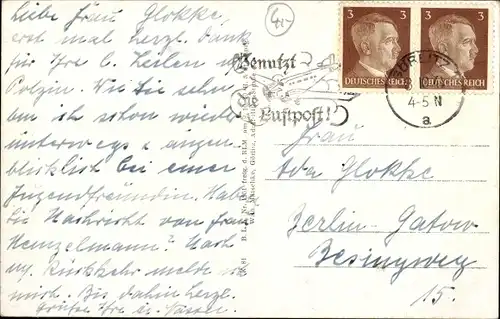 Liebe Frau Glokke,
erst mal herzl. Dank
für Ihre l. Zeilen
Polzin. Wie Sie sehn
bin ich schon wieder
unterwegs u. augen-
blicklich bei einer
Jugendfreundin. Habe
Sie Nachricht von Frau
Henzelmann? Nach
m. Rückkehr melde
mich. Bis dahin herzl.
Grüße Ihre
45
Benutzt
die
Luftpost!
3 3
DEUTSCHES REICH DEUTSCHES REICH
4-5 N
a
Frau
Ada Glokke
Berlin-Gatow
Besingweg
15.